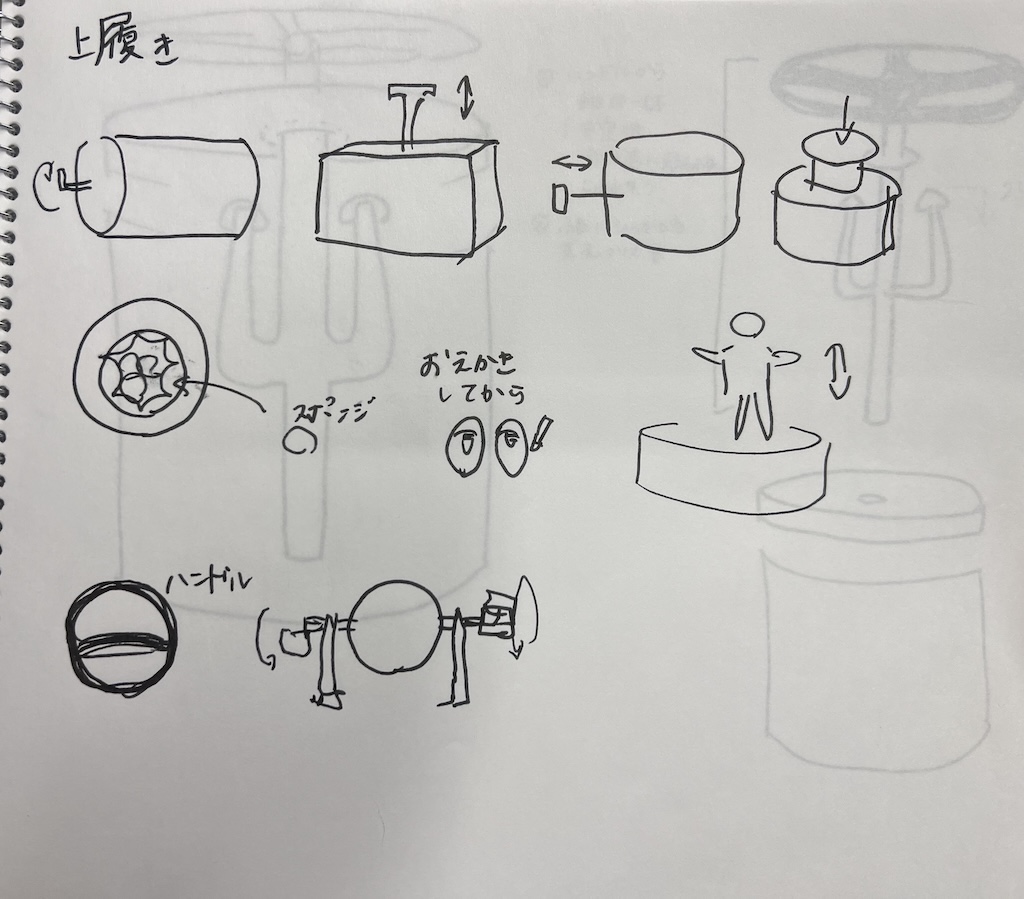 上履き
スポンジ
おえかき
してから
ハンドル